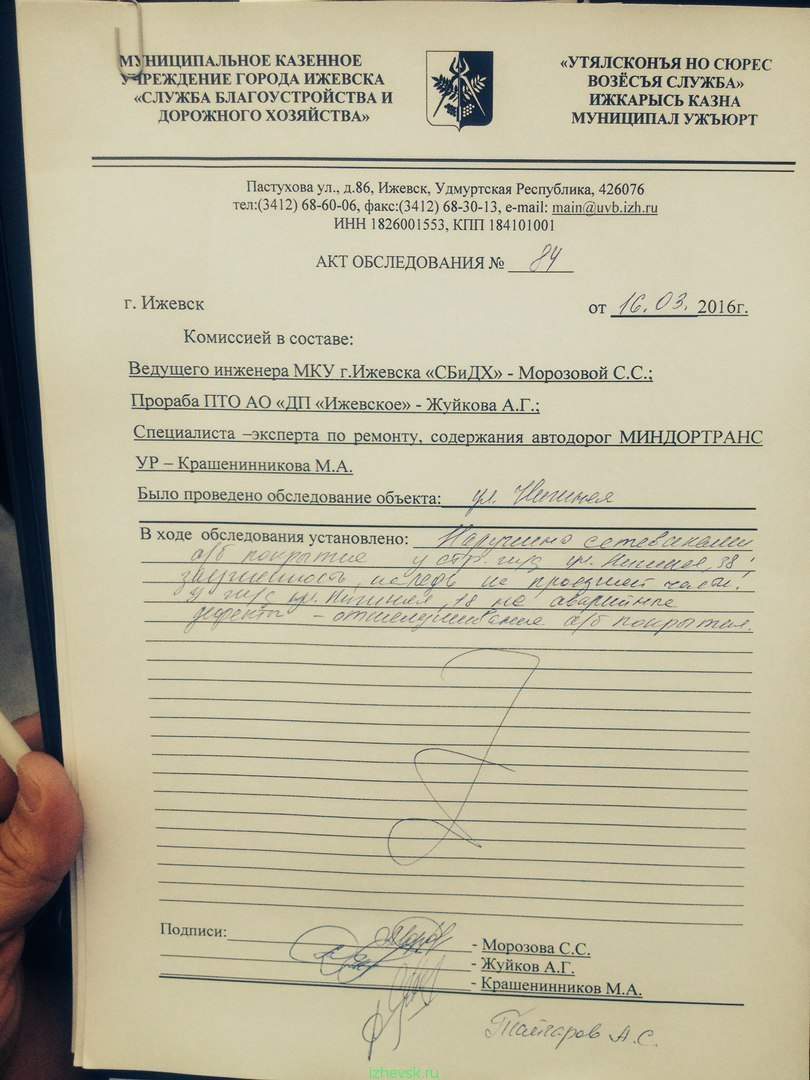 МУНИЦИПАЛЬНОЕ КАЗЕННОЕ
УЧРЕЖДЕНИЕ ГОРОДА ИЖЕВСКА
«СЛУЖБА БЛАГОУСТРОЙСТВА И
ДОРОЖНОГО ХОЗЯЙСТВА»
«УТЯЛСКОНЪЯ НО СЮРЕС
ВОЗЁСЪЯ СЛУЖБА»
ИЖКАРЫСЬ КАЗНА
МУНИЦИПАЛ УЖЪЮРТ
Пастухова ул., д.86, Ижевск, Удмуртская Республика, 426076
тел:(3412) 68-60-06, факс:(3412) 68-30-13, e-mail: main@uvb.izh.ru
ИНН 1826001553, КПП 184101001
АКТ ОБСЛЕДОВАНИЯ № 84
г. Ижевск
от 16.03. 2016г.
Комиссией в составе:
Ведущего инженера МКУ г.Ижевска «СБиДХ» - Морозовой С.С.;
Прораба ПТО АО «ДП «Ижевское» - Жуйкова А.Г.;
Специалиста –эксперта по ремонту, содержания автодорог МИНДОРТРАНС
УР – Крашенинникова М.А.
Было проведено обследование объекта: ул. Нижняя
В ходе обследования установлено: Нарушено
а/б покрытие у стр. ул. Нижняя, 38!
проезжей части!
ул. Нижняя, 18 не аварийные
дефекты – отшелушивание а/б покрытия.
Подписи:
- Морозова С.С.
- Жуйков А.Г.
- Крашенинников М.А.
А.С.
izhevsk.ru